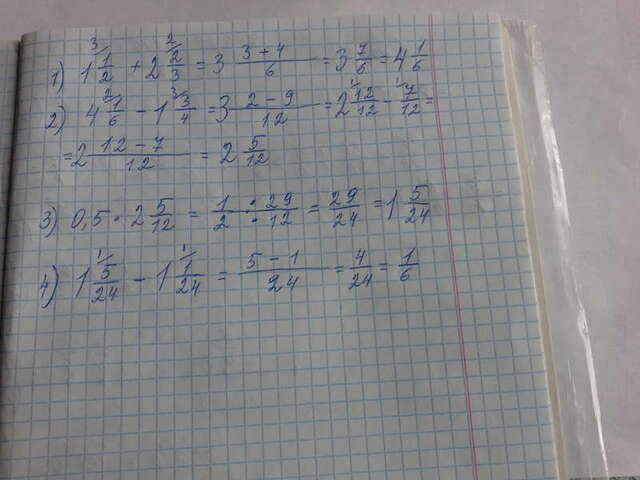 1) 1 3/ 1/2 + 2 2/ 2/3 = 3 (3+4)/6 = 3 7/6 = 4 1/6
2) 4 2/ 1/6 - 1 3/ 3/4 = 3 (2-9)/12 = 2 1/ 12/12 - 1/ 7/12 =
= 2 (12-7)/12 = 2 5/12
3) 0,5 · 2 5/12 = (1 · 29)/(2 · 12) = 29/24 = 1 5/24
4) 1 1/ 5/24 - 1 1/ 1/24 = (5-1)/24 = 4/24 = 1/6